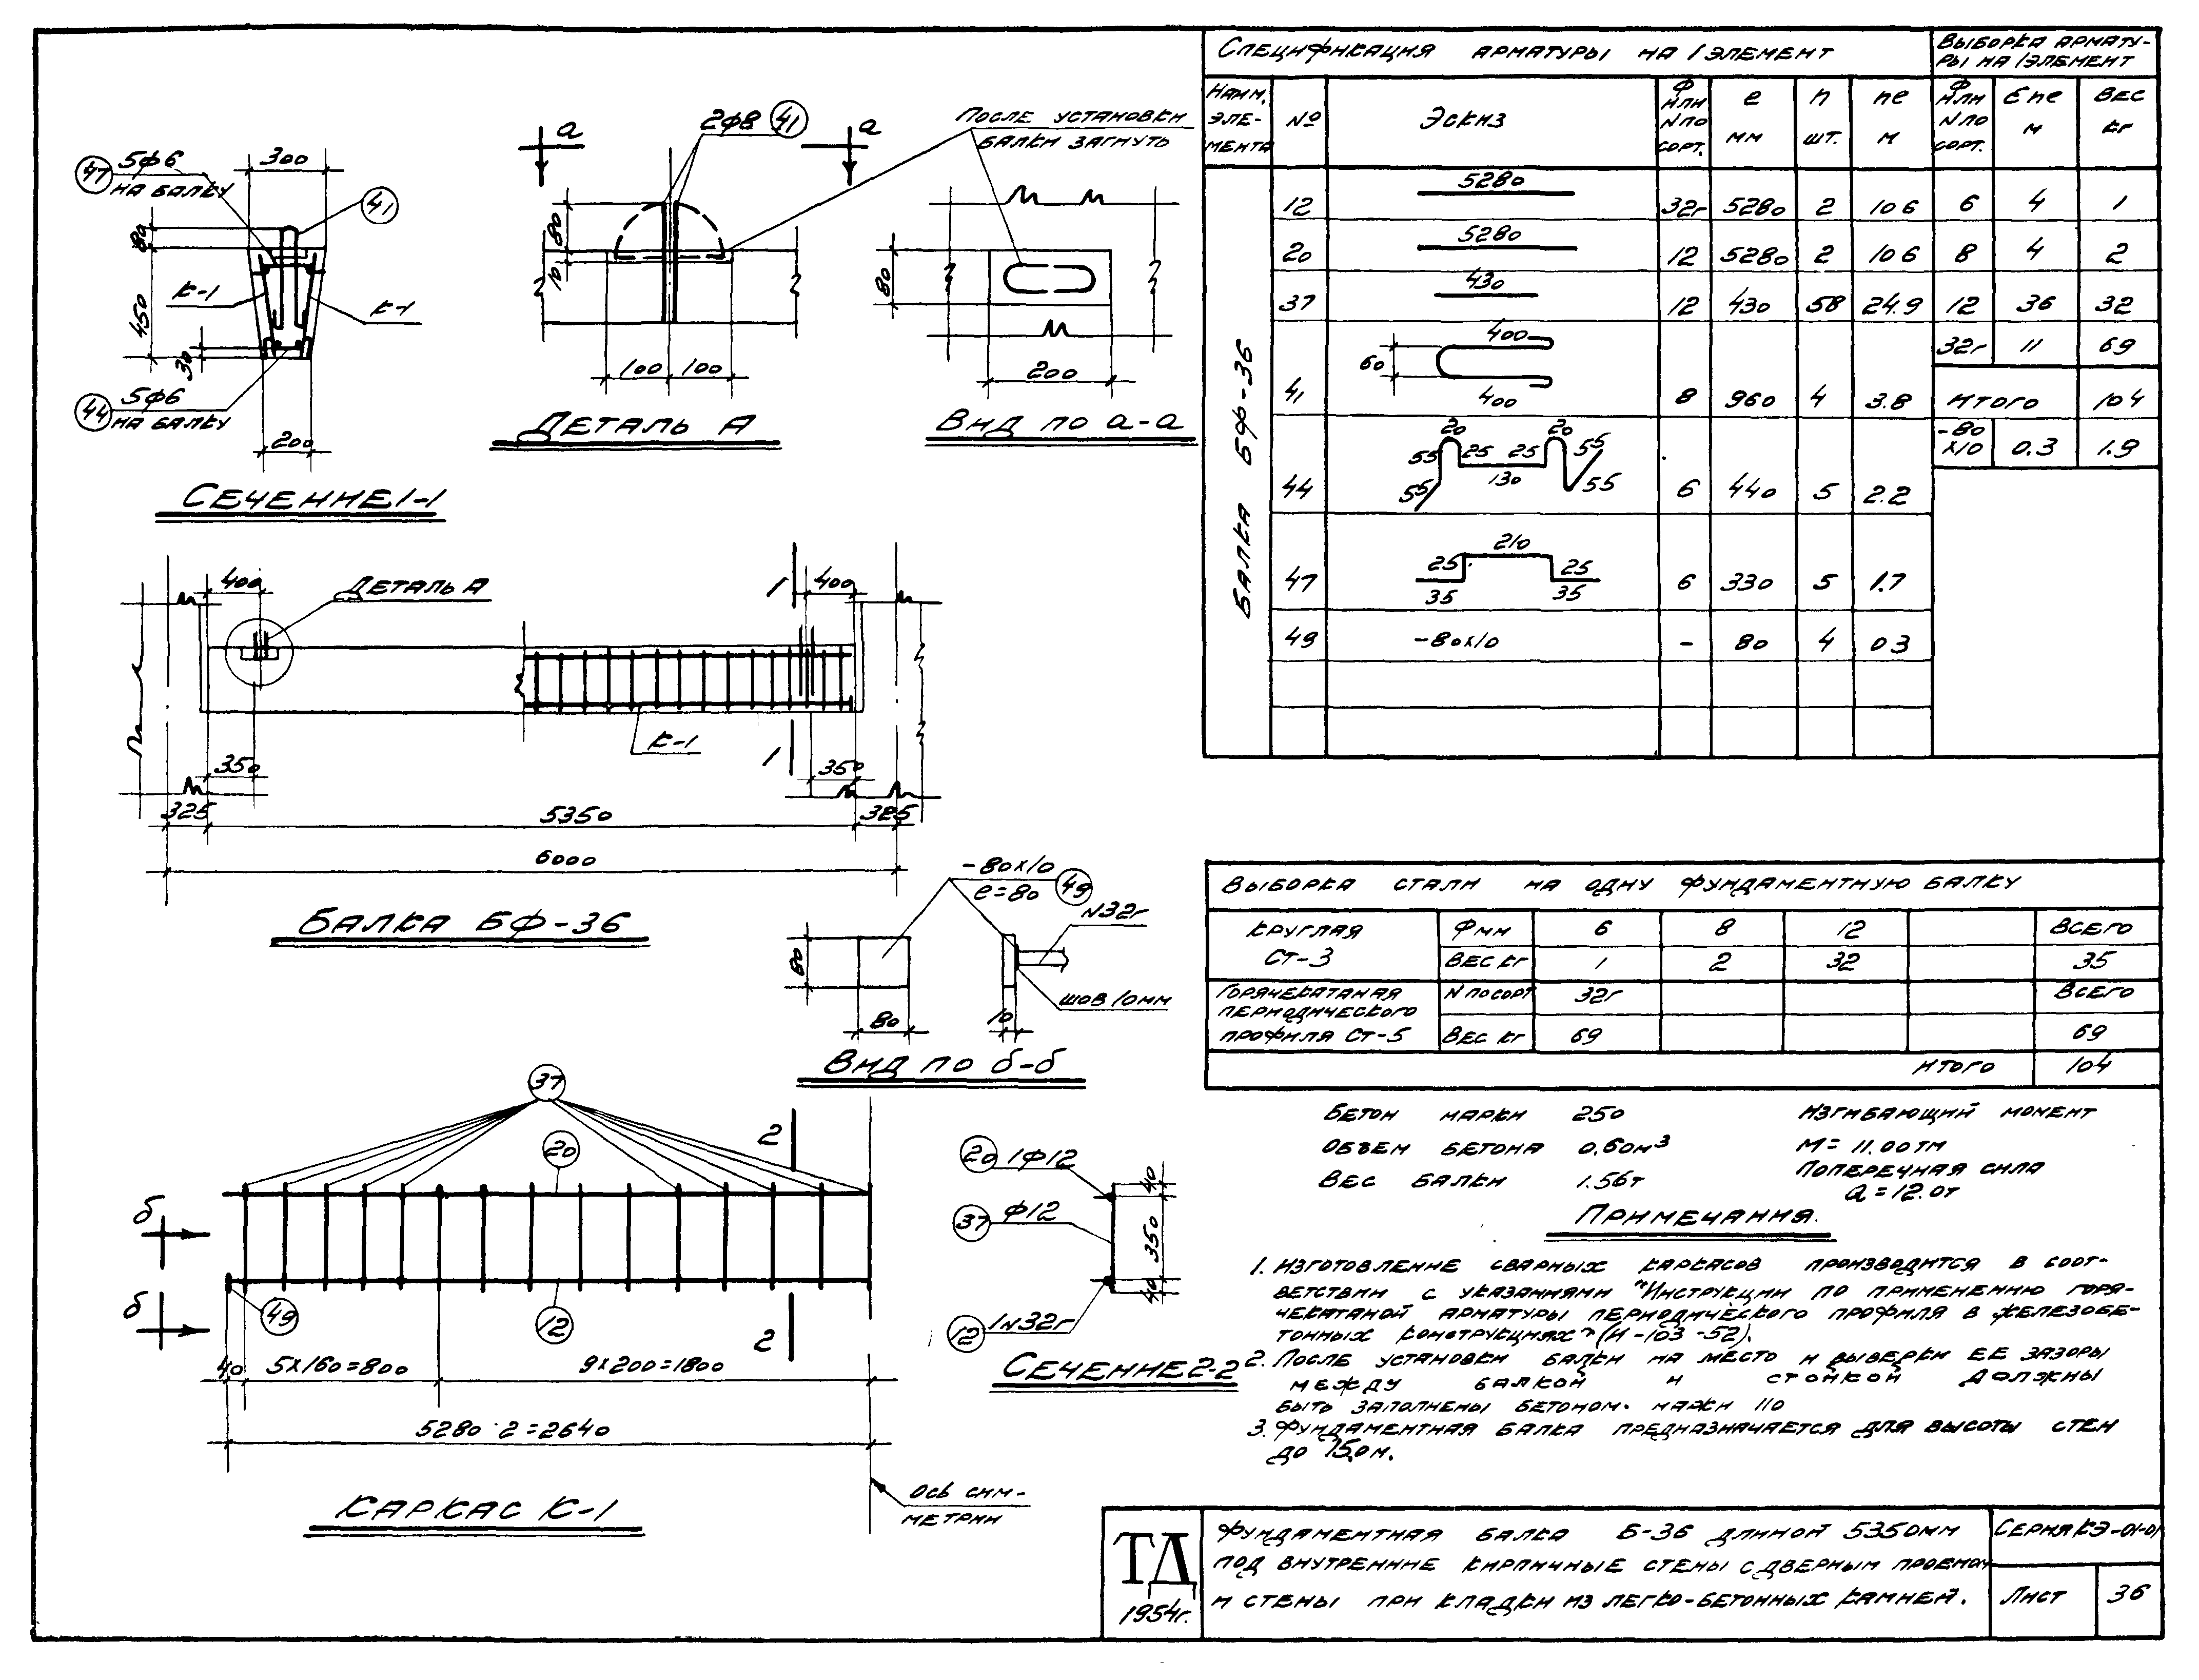 47 5ф6
на балку
300
41
80
450
30
К-1
К-1
44 5ф6
на балку
200
Сечение 1-1
а
2ф8 41
а
80
10
100 100
Деталь А
После установки
балки загнуть
80
200
Вид по а-а
400
Деталь А
1
400
К-1
1
350
350
325
5350
325
6000
Балка БФ-36
-80х10
е=80
49
N32г
80
80
10
шов 10мм
Вид по б-б
37
20
2
б
б
49
12
2
40
5х160=800
9х200=1800
5280:2=2640
Ось сим-
метрии
Каркас К-1
20 1ф12
37 ф12
12 1N32г
40
350
40
Сечение 2-2
Спецификация арматуры на 1 элемент
Выборка армату-
ры на 1 элемент
Наим. эле-мента № Эскиз Ф или N по сорт. е мм n шт. nе м Ф или N по сорт. Σnе м вес кг
Балка БФ-36
12 5280 32г 5280 2 10 6 6 4 1
20 5280 12 5280 2 10 6 8 4 2
37 430 12 430 58 24.9 12 36 32
32г 11 69
41 60 400 400 8 960 4 3.8 Итого 104
-80х10 0.3 1.9
44 55 55 20 25 130 25 20 55 55 6 440 5 2.2
47 35 25 210 25 35 6 330 5 1.7
49 -80х10 - 80 4 0 3
Выборка стали на одну фундаментную балку
Круглая Ст-3 Ф мм 6 8 12 Всего
Вес кг 1 2 32 35
Горячекатаная периодического профиля Ст-5 N по сорт 32г Всего
Вес кг 69 69
Итого 104
Бетон марки 250
Объем бетона 0.60м³
Вес балки 1.56т
Изгибающий момент
М= 11.00тм
Поперечная сила
Q=12.0т
Примечания.
1. Изготовление сварных каркасов производится в соот-
ветствии с указаниями "Инструкции по применению горя-
чекатаной арматуры периодического профиля в железобе-
тонных конструкциях" (И-103-52).
2. После установки балки на место и выверки ее зазоры
между балкой и стойкой должны
быть заполнены бетоном. марки 110
3. Фундаментная балка предназначается для высоты стен
до 15,0м.
ТД
1954г.
Фундаментная балка Б-36 длиной 5350мм
под внутренние кирпичные стены с дверным проемом
и стены при кладки из легко-бетонных камней.
Серия КЭ-01-01
Лист 36